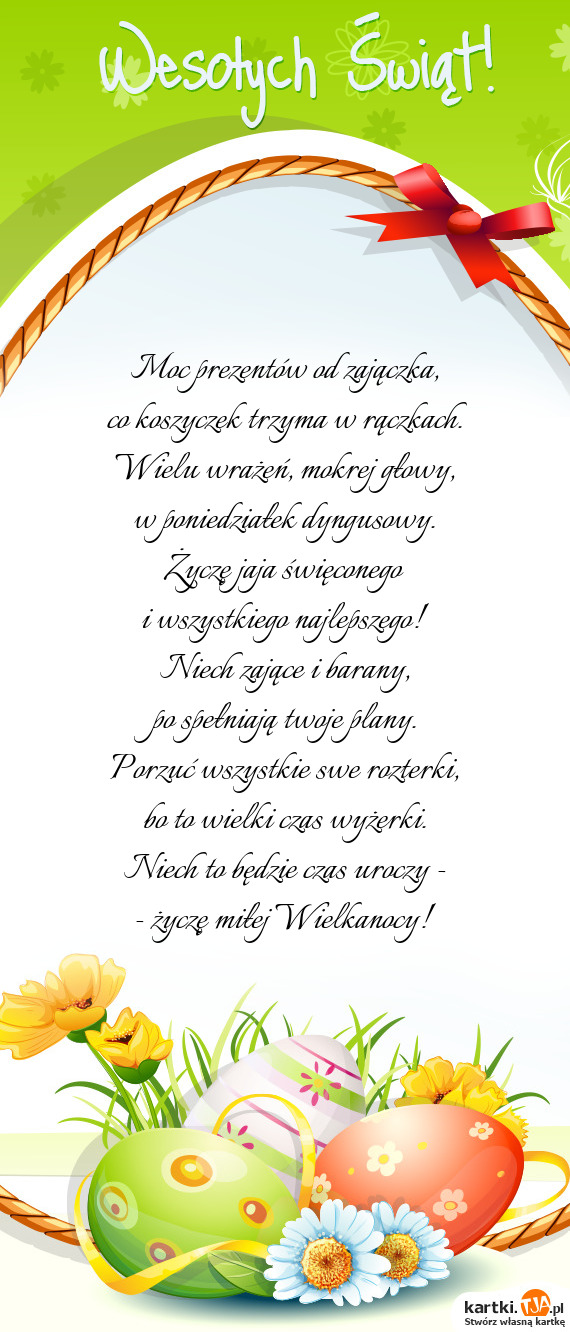 Wesołych Świąt!
Moc prezentów od zajączka,
co koszyczek trzyma w rączkach.
Wielu wrażeń, mokrej głowy,
w poniedziałek dyngusowy.
Życzę jaja święconego
i wszystkiego najlepszego!
Niech zające i barany,
po spełniają twoje plany.
Porzuć wszystkie swe rozterki,
bo to wielki czas wyżerki.
Niech to będzie czas uroczy -
- życzę miłej Wielkanocy!
kartki.TJA.pl
Stwórz własną kartkę